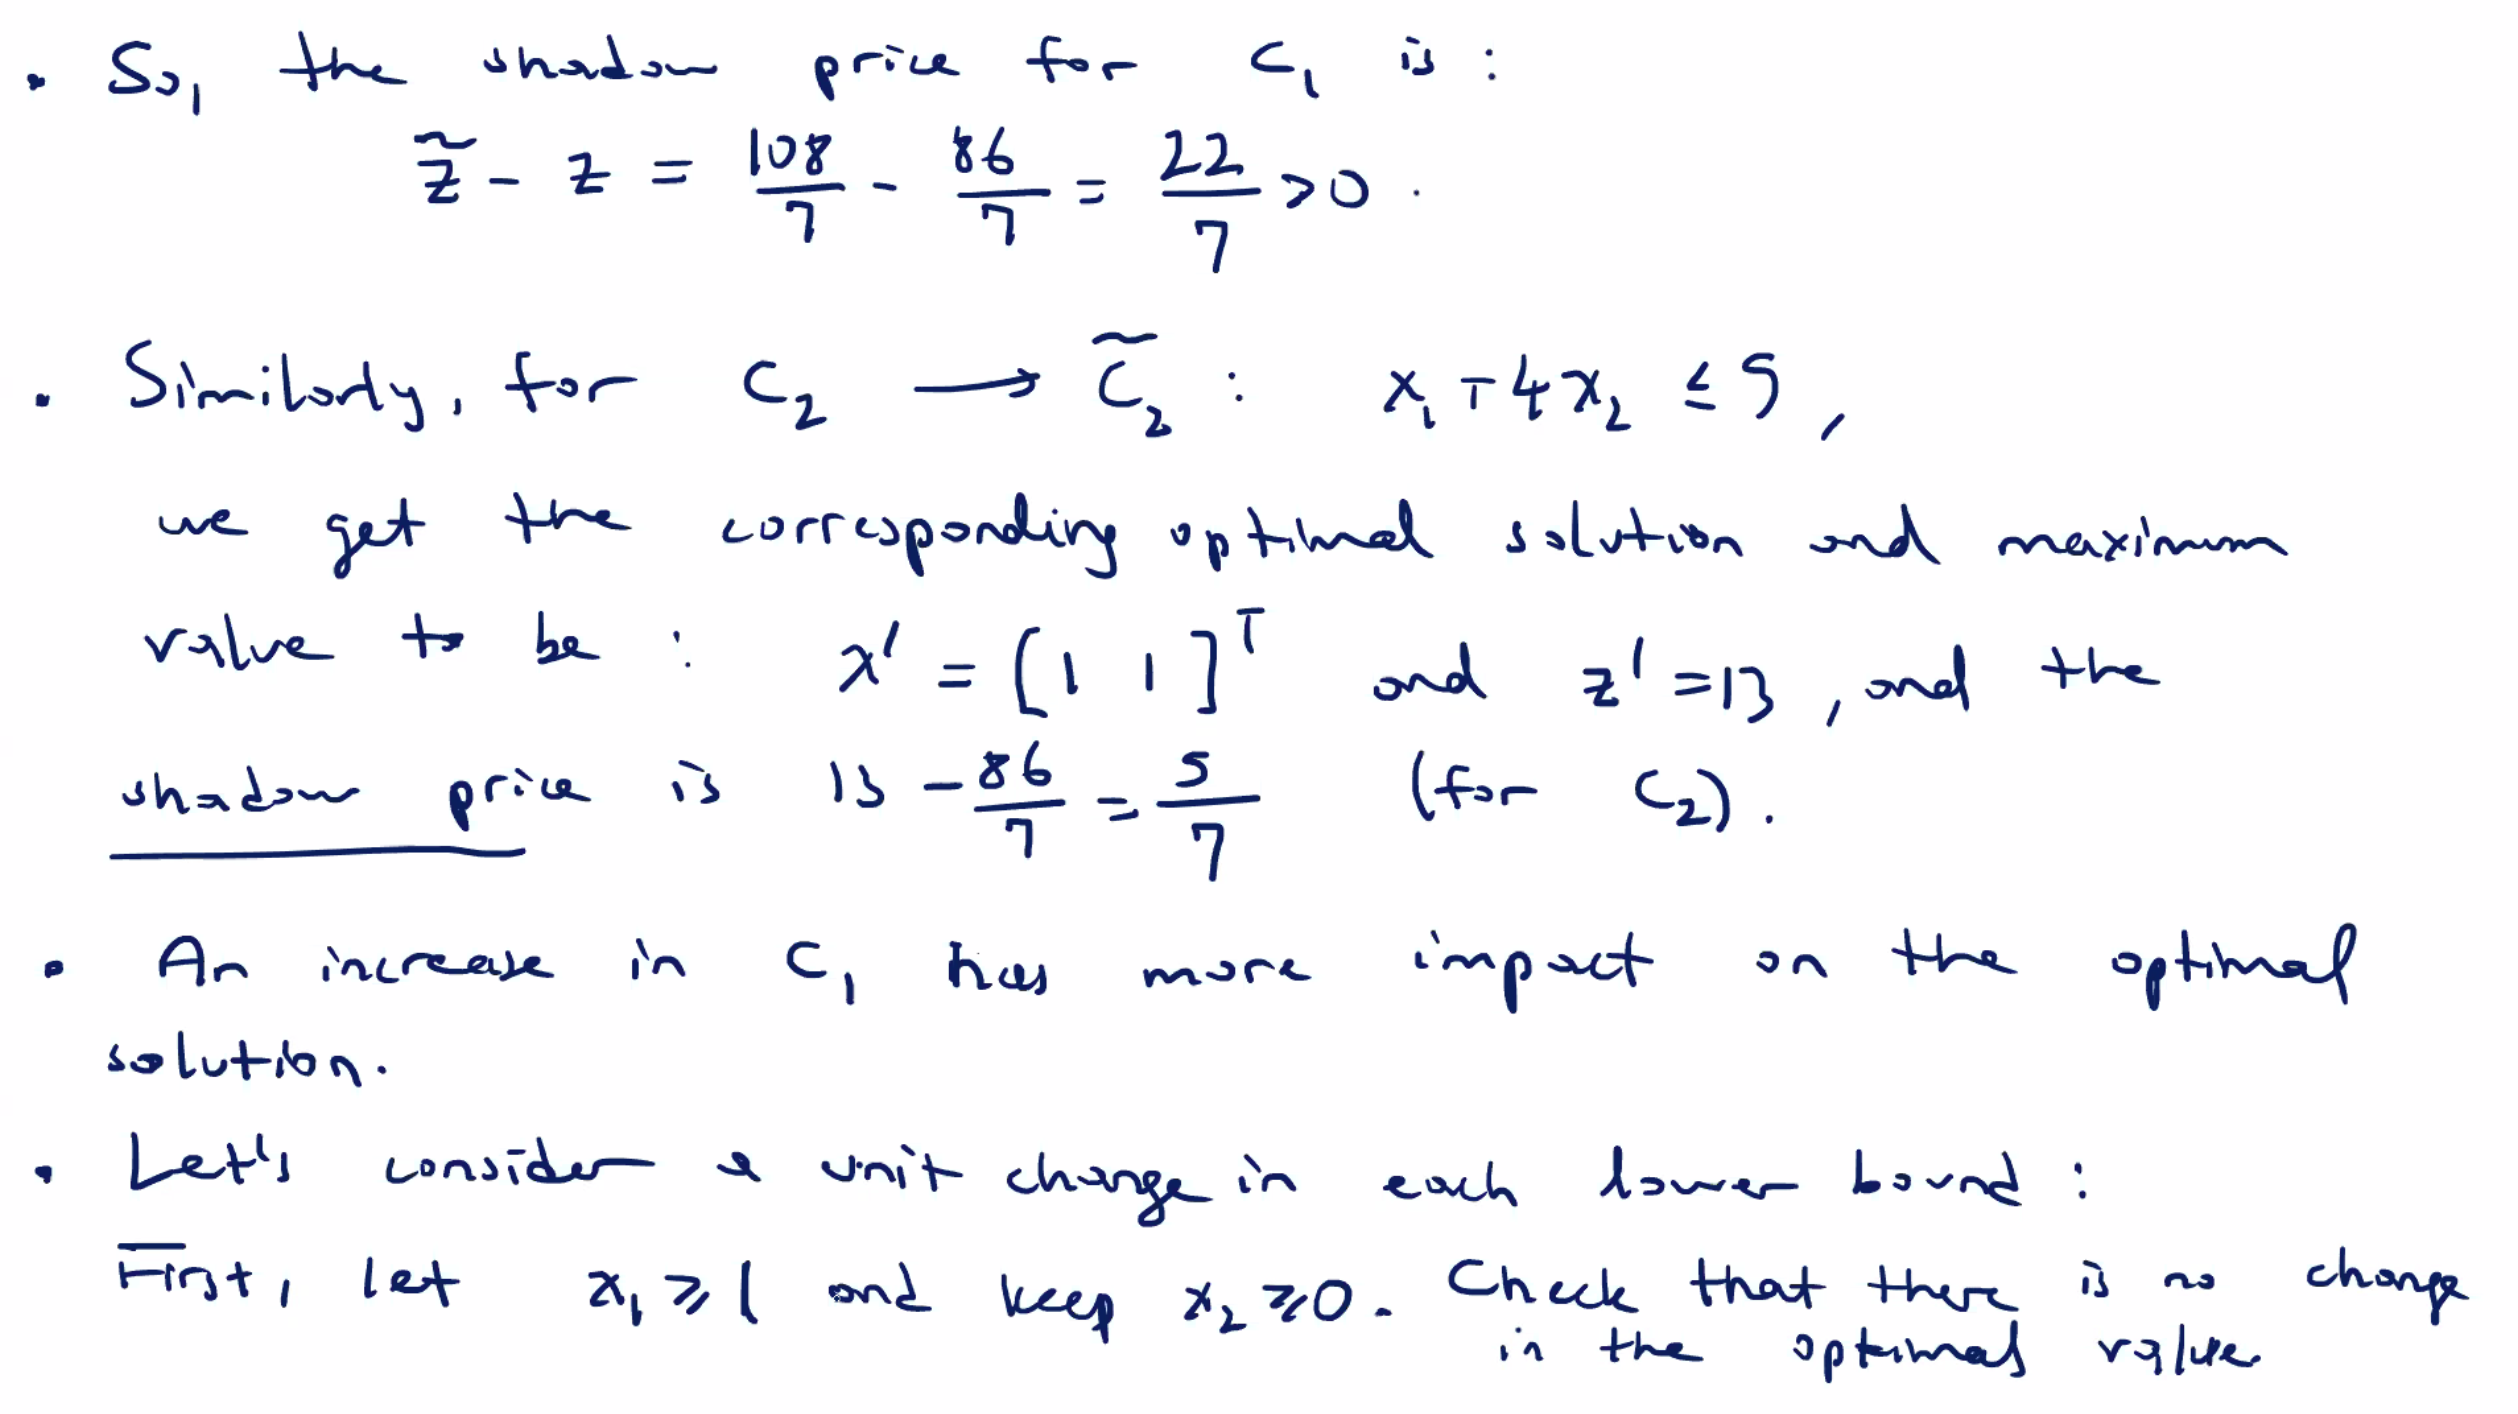 • So, the shadow price for C₁ is :
z̃ - z = 108/7 - 86/7 = 22/7 > 0 .
• Similarly, for C₂ ⟶ C̃₂ : x₁ + 4x₂ ≤ 5 ,
we get the corresponding optimal solution and maximum
value to be : x' = [1 1]ᵀ and z' = 13 , and the
shadow price is 13 - 86/7 = 5/7 (for C₂).
• An increase in C₁ has more impact on the optimal
solution.
• Let's consider a unit change in each lower bound :
First, let x₁ ≥ 1 and keep x₂ ≥ 0. Check that there is no change
in the optimal value.